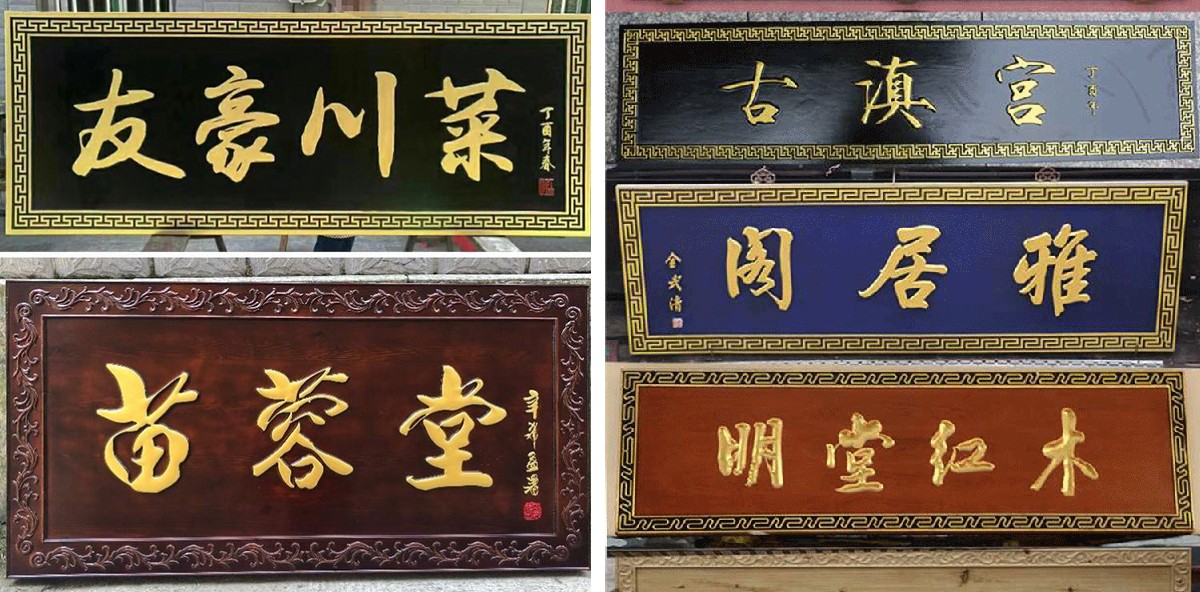 友豪川菜
丁酉年春
苗蓉堂
辛希孟署
古滇宫
丁酉年
雅居阁
金武清
明堂红木